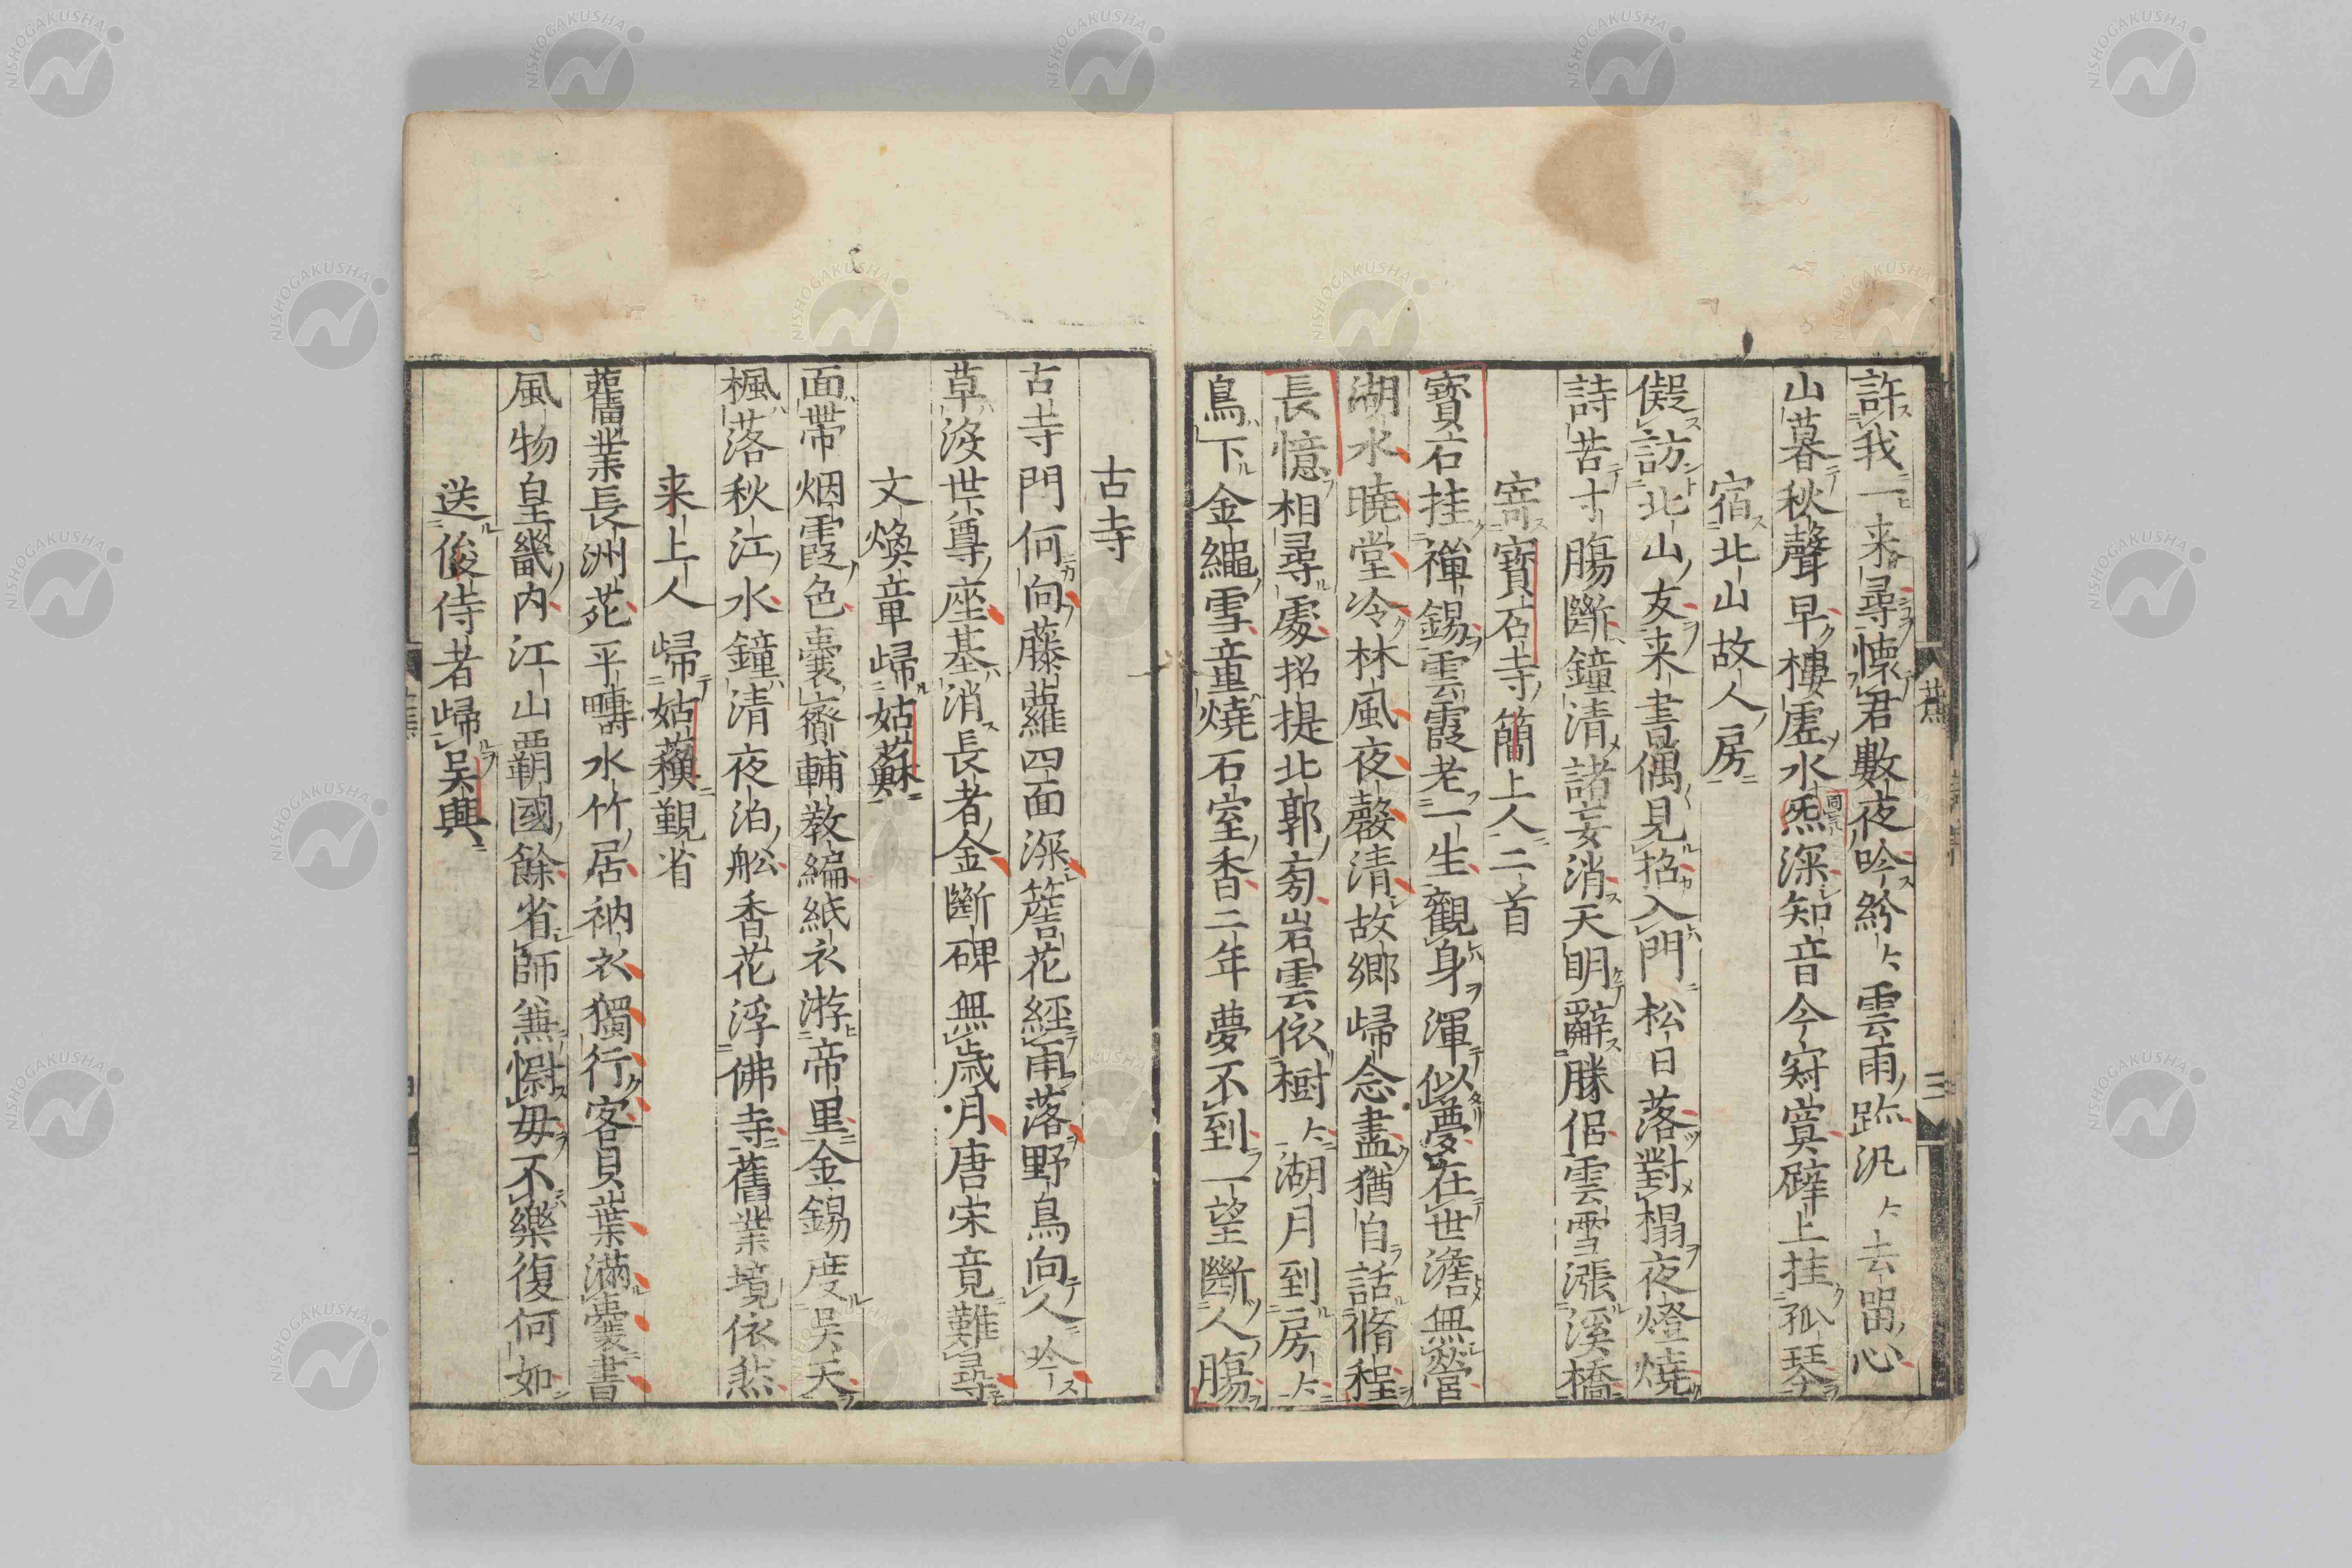 許我一来尋懷君數夜吟紛〻雲雨跡汎〻去留心
山暮秋聲早樓虛水炁深知音今寂寞壁上挂孤琴
宿北山故人房
儗訪北山友来書偶見招入門松日落對榻夜燈燒
詩苦寸腸斷鐘清諸妄消天明辭勝侶雲雪漲溪橋
寄寳石寺簡上人二首
寳石挂禪錫雲霞老一生觀身渾似夢在世澹無營
湖水曉堂冷林風夜磬清故鄉歸念盡猶自話脩程
長憶相尋處招提北郭旁岩雲依樹〻湖月到房〻
鳥下金繩雪童燒石室香二年夢不到一望斷人腸
蕉
三
古寺
古寺門何向藤蘿四面深簷花經雨落野鳥向人吟
草沒世尊座基消長者金斷碑無歲月唐宋竟難尋
文煥章歸姑蘇
面帶烟霞色囊齎輔教編紙衣游帝里金錫度吳天
楓落秋江水鐘清夜泊舩香花浮佛寺舊業境依然
来上人歸姑蘓觀省
舊業長洲苑平疇水竹居衲衣獨行客貝葉滿囊書
風物皇畿内江山霸國餘省師兼慰母不樂復何如
送俊侍者歸吳興
NISHOGAKUSHA